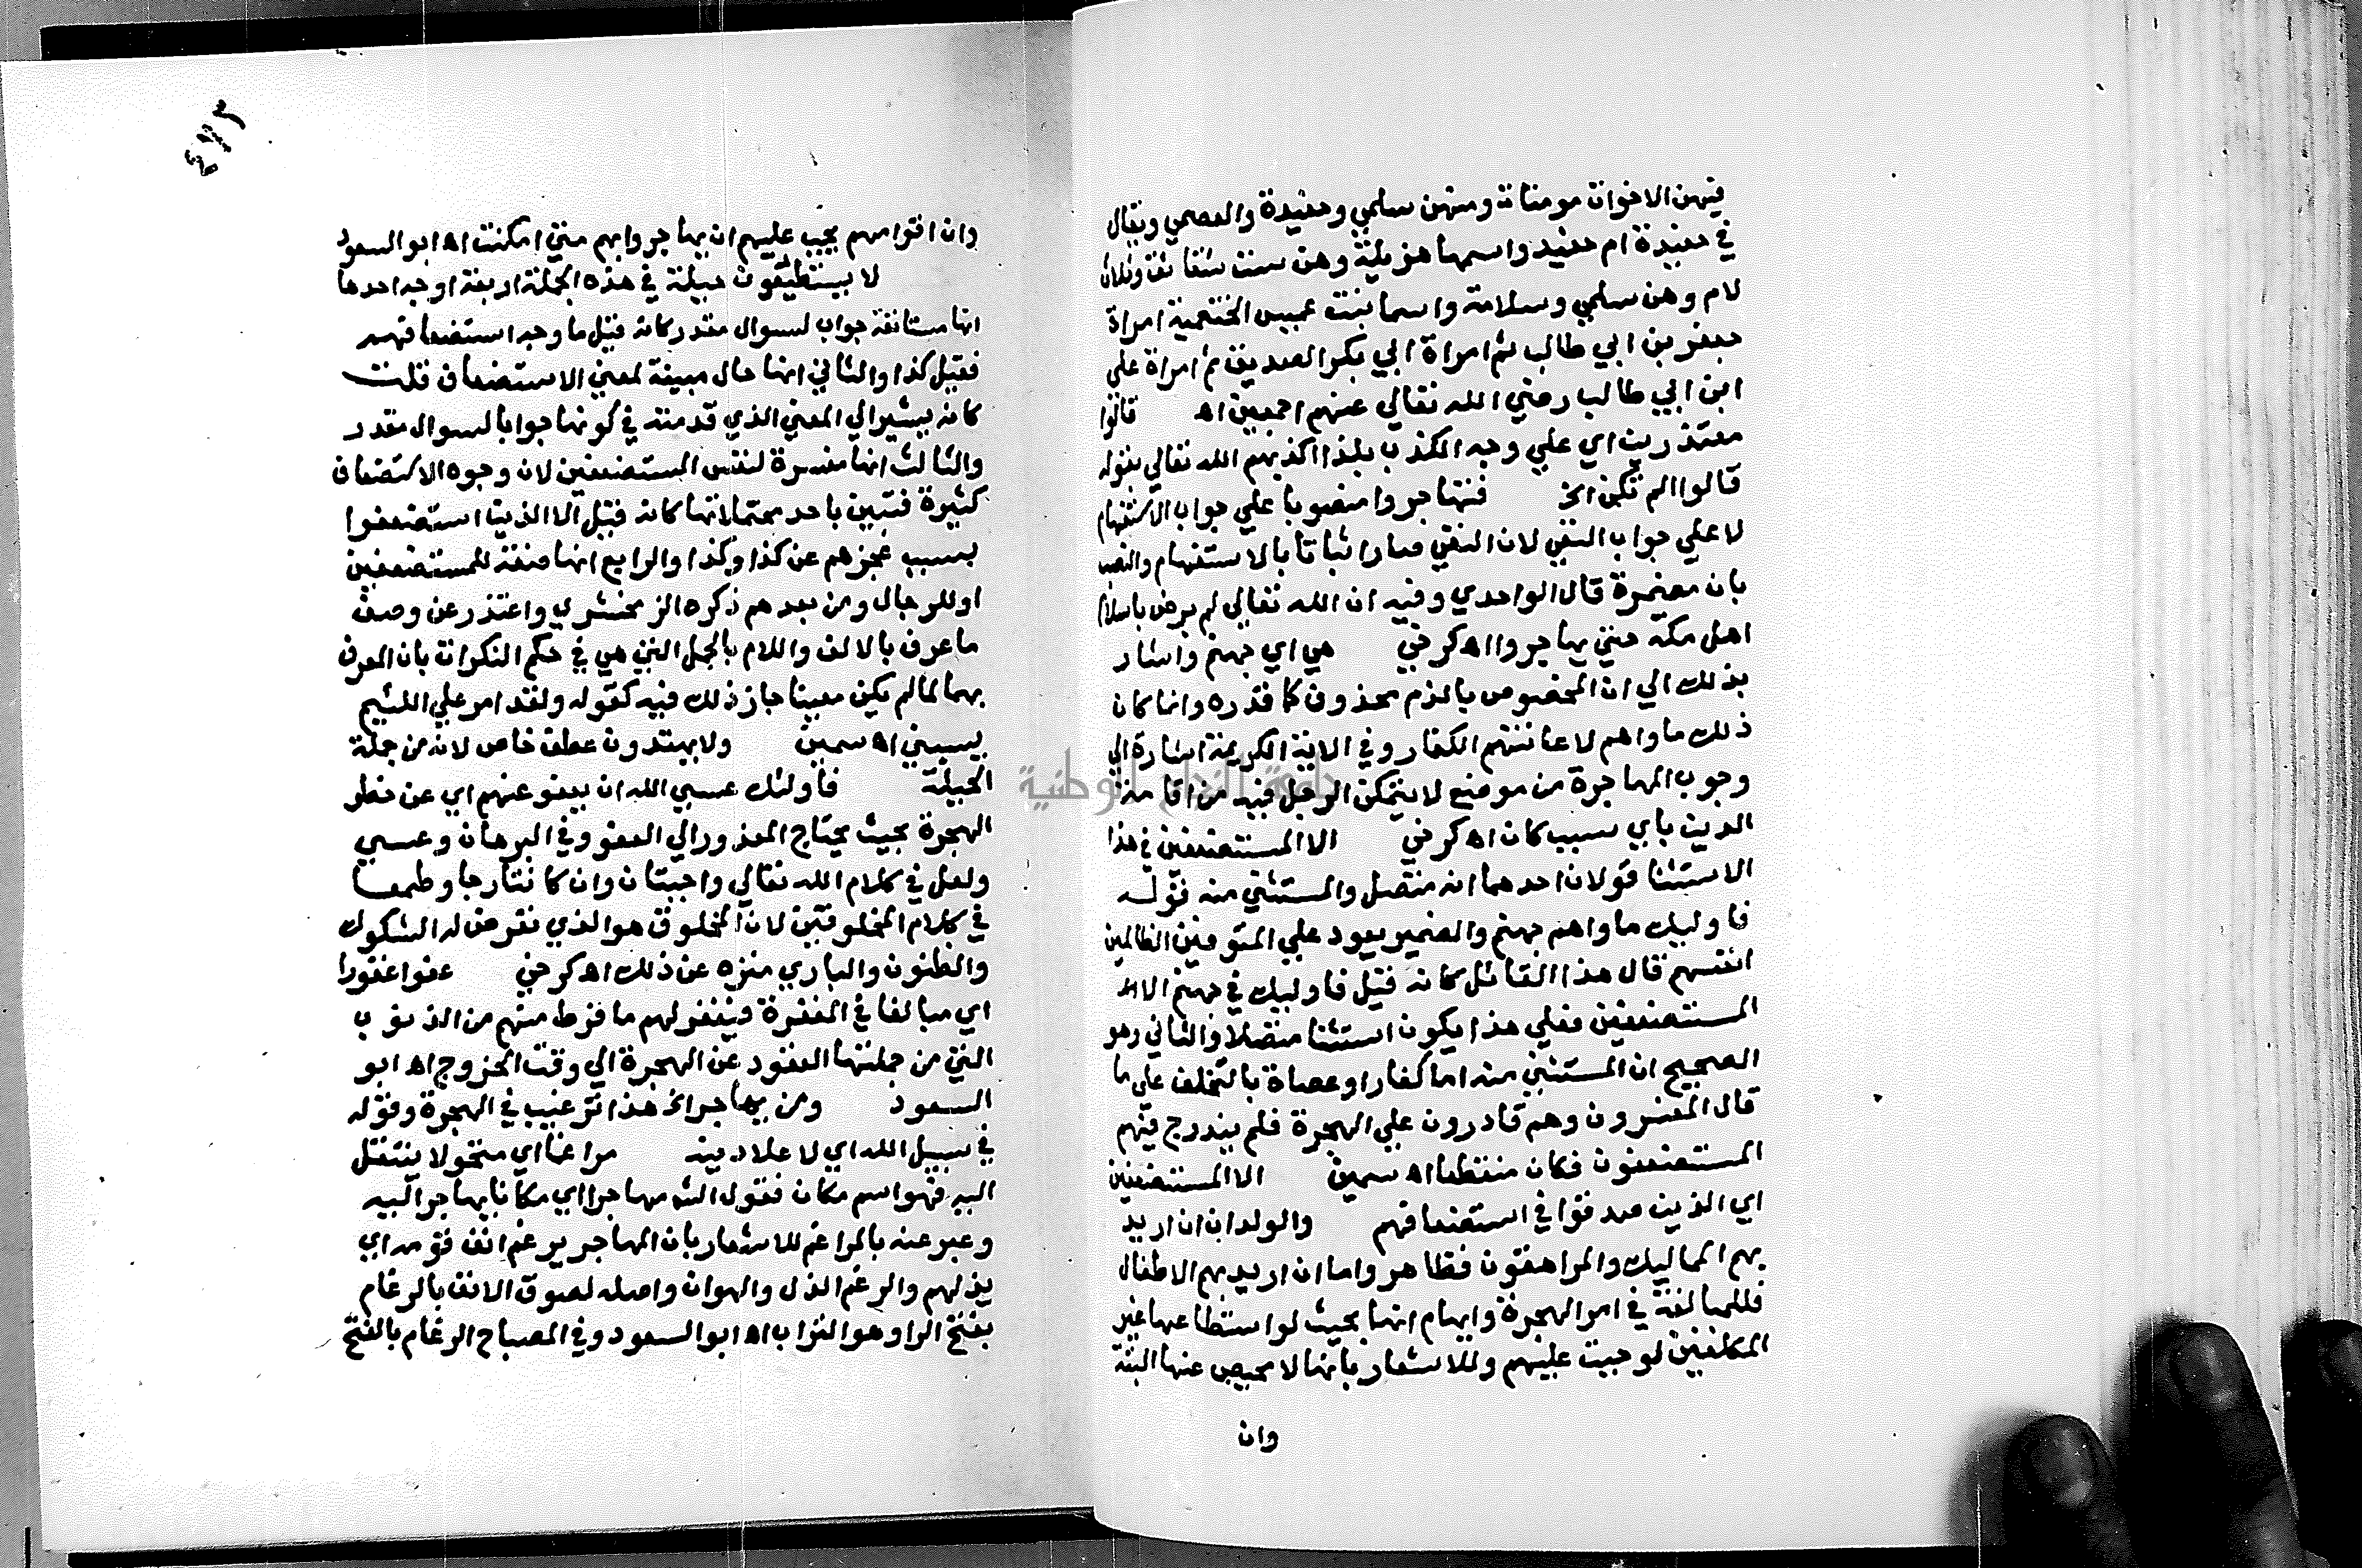 فيهن الاخوات مومنات ومنهن سلمي وحفيدة والعصمي ويقال
في حفيدة ام حفيد واسمها هزيلة وهن ست شقائق وثلاث
لام وهن سلمي وسلامة واسما بنت عميس الخثعمية امراة
جعفر بن ابي طالب ثم امراة ابي بكر الصديق ثم امراة علي
ابن ابي طالب رضي الله تعالي عنهم اجمعين اه قالوا
معتذرين اي علي وجه الكذب بلذا اكذبهم الله تعالي بقوله
قالوا الم تكن الخ فتهاجروا منصوبا علي جواب الاستفهام
لا علي جواب النفي لان النفي صار اثباتا بالاستفهام والنصب
بان مضمرة قال الواحدي وفيه ان الله تعالي لم يرض باسلام
اهل مكة حتي يهاجروا اه كرخي هي اي جهنم واشار
بذلك الي ان المخصوص بالذم محذوف كما قدره وانما كان
ذلك ماواهم لاعانتهم الكفار وفي الاية الكريمة اشارة الي
وجوب المهاجرة من موضع لا يتمكن الرجل فيه من اقامة
الدين باي سبب كان اه كرخي الا المستضعفين في هذا
الاستثنا قولان احدهما انه متصل والمستثني منه قوله
فاوليك ماواهم جهنم والضمير يعود علي المتوفين الظالمين
انفسهم قال هذا القائل كانه قيل فاوليك في جهنم الا اه
المستضعفين فعلي هذا يكون استثنا متصلا والثاني وهو
الصحيح ان المستثني منه اما كفار او عصاة بالتخلف علي ما
قال المفسرون وهم قادرون علي الهجرة فلم يندرج فيهم
المستضعفون فكان منقطعا اه سمين الا المستضعفين
اي الذين صدقوا في استضعافهم والولدان ان اريد
بهم المماليك والمراهقون فظاهر واما ان اريد بهم الاطفال
فللمبالغة في امر الهجرة وايهام انها بحيث لو استطاعها غير
المكلفين لوجبت عليهم وللاشعار بانها لا محيص عنها البتة
وان
٤٧٢
وان اقوامهم يجب عليهم ان يهاجروا بهم متي امكنت اه ابو السعود
لا يستطيعون حيلة في هذه الجملة اربعة اوجه احدها
انها مستانفة جواب لسوال مقدر كانه قيل ما وجه استضعافهم
فقيل كذا والثاني انها حال مبينة لمعني الاستضعاف قلت
كانه يشير الي المعني الذي قدمته في كونها جوابا لسوال مقدر
والثالث انها مفسرة لنفس المستضعفين لان وجوه الاستضعاف
كثيرة فتبين باحد محتملاتها كانه قيل الا الذين استضعفوا
بسبب عجزهم عن كذا وكذا والرابع انها صفة للمستضعفين
او للرجال ومن بعدهم ذكره الزمخشري واعتذر عن وصف
ما عرف بالالف واللام بالجمل التي هي في حكم النكرات بان المعرف
بهما لما لم يكن معينا جاز ذلك فيه كقوله ولقد امر علي اللئيم
يسبني اه سمين ولا يهتدون عطف خاص لانه من جملة
الحيلة فاولئك عسي الله ان يعفو عنهم اي عن خطر
الهجرة بحيث يحتاج المعذور الي العفو وفي البرهان وعسي
ولعل في كلام الله تعالي واجبتان وان كانتا رجا وطمعا
في كلام المخلوقين لان المخلوق هو الذي تعرض له الشكوك
والظنون والباري منزه عن ذلك اه كرخي عفوا غفورا
اي مبالغا في المغفرة فيغفر لهم ما فرط منهم من الذنوب
التي من جملتها القعود عن الهجرة الي وقت الخروج اه ابو
السعود ومن يهاجر الخ هذا ترغيب في الهجرة وقوله
في سبيل الله اي لاعلا دينه مراغما اي متحولا ينتقل
اليه فهو اسم مكان فقول الش مهاجرا اي مكانا يهاجر اليه
وعبر عنه بالمراغم للاشعار بان المهاجر يرغم انف قومه اي
يذلهم والرغم الذل والهوان واصله لصوق الانف بالرغام
بفتح الرا وهو التراب اه ابو السعود وفي المصباح الرغام بالفتح
جامعة النجاح الوطنية